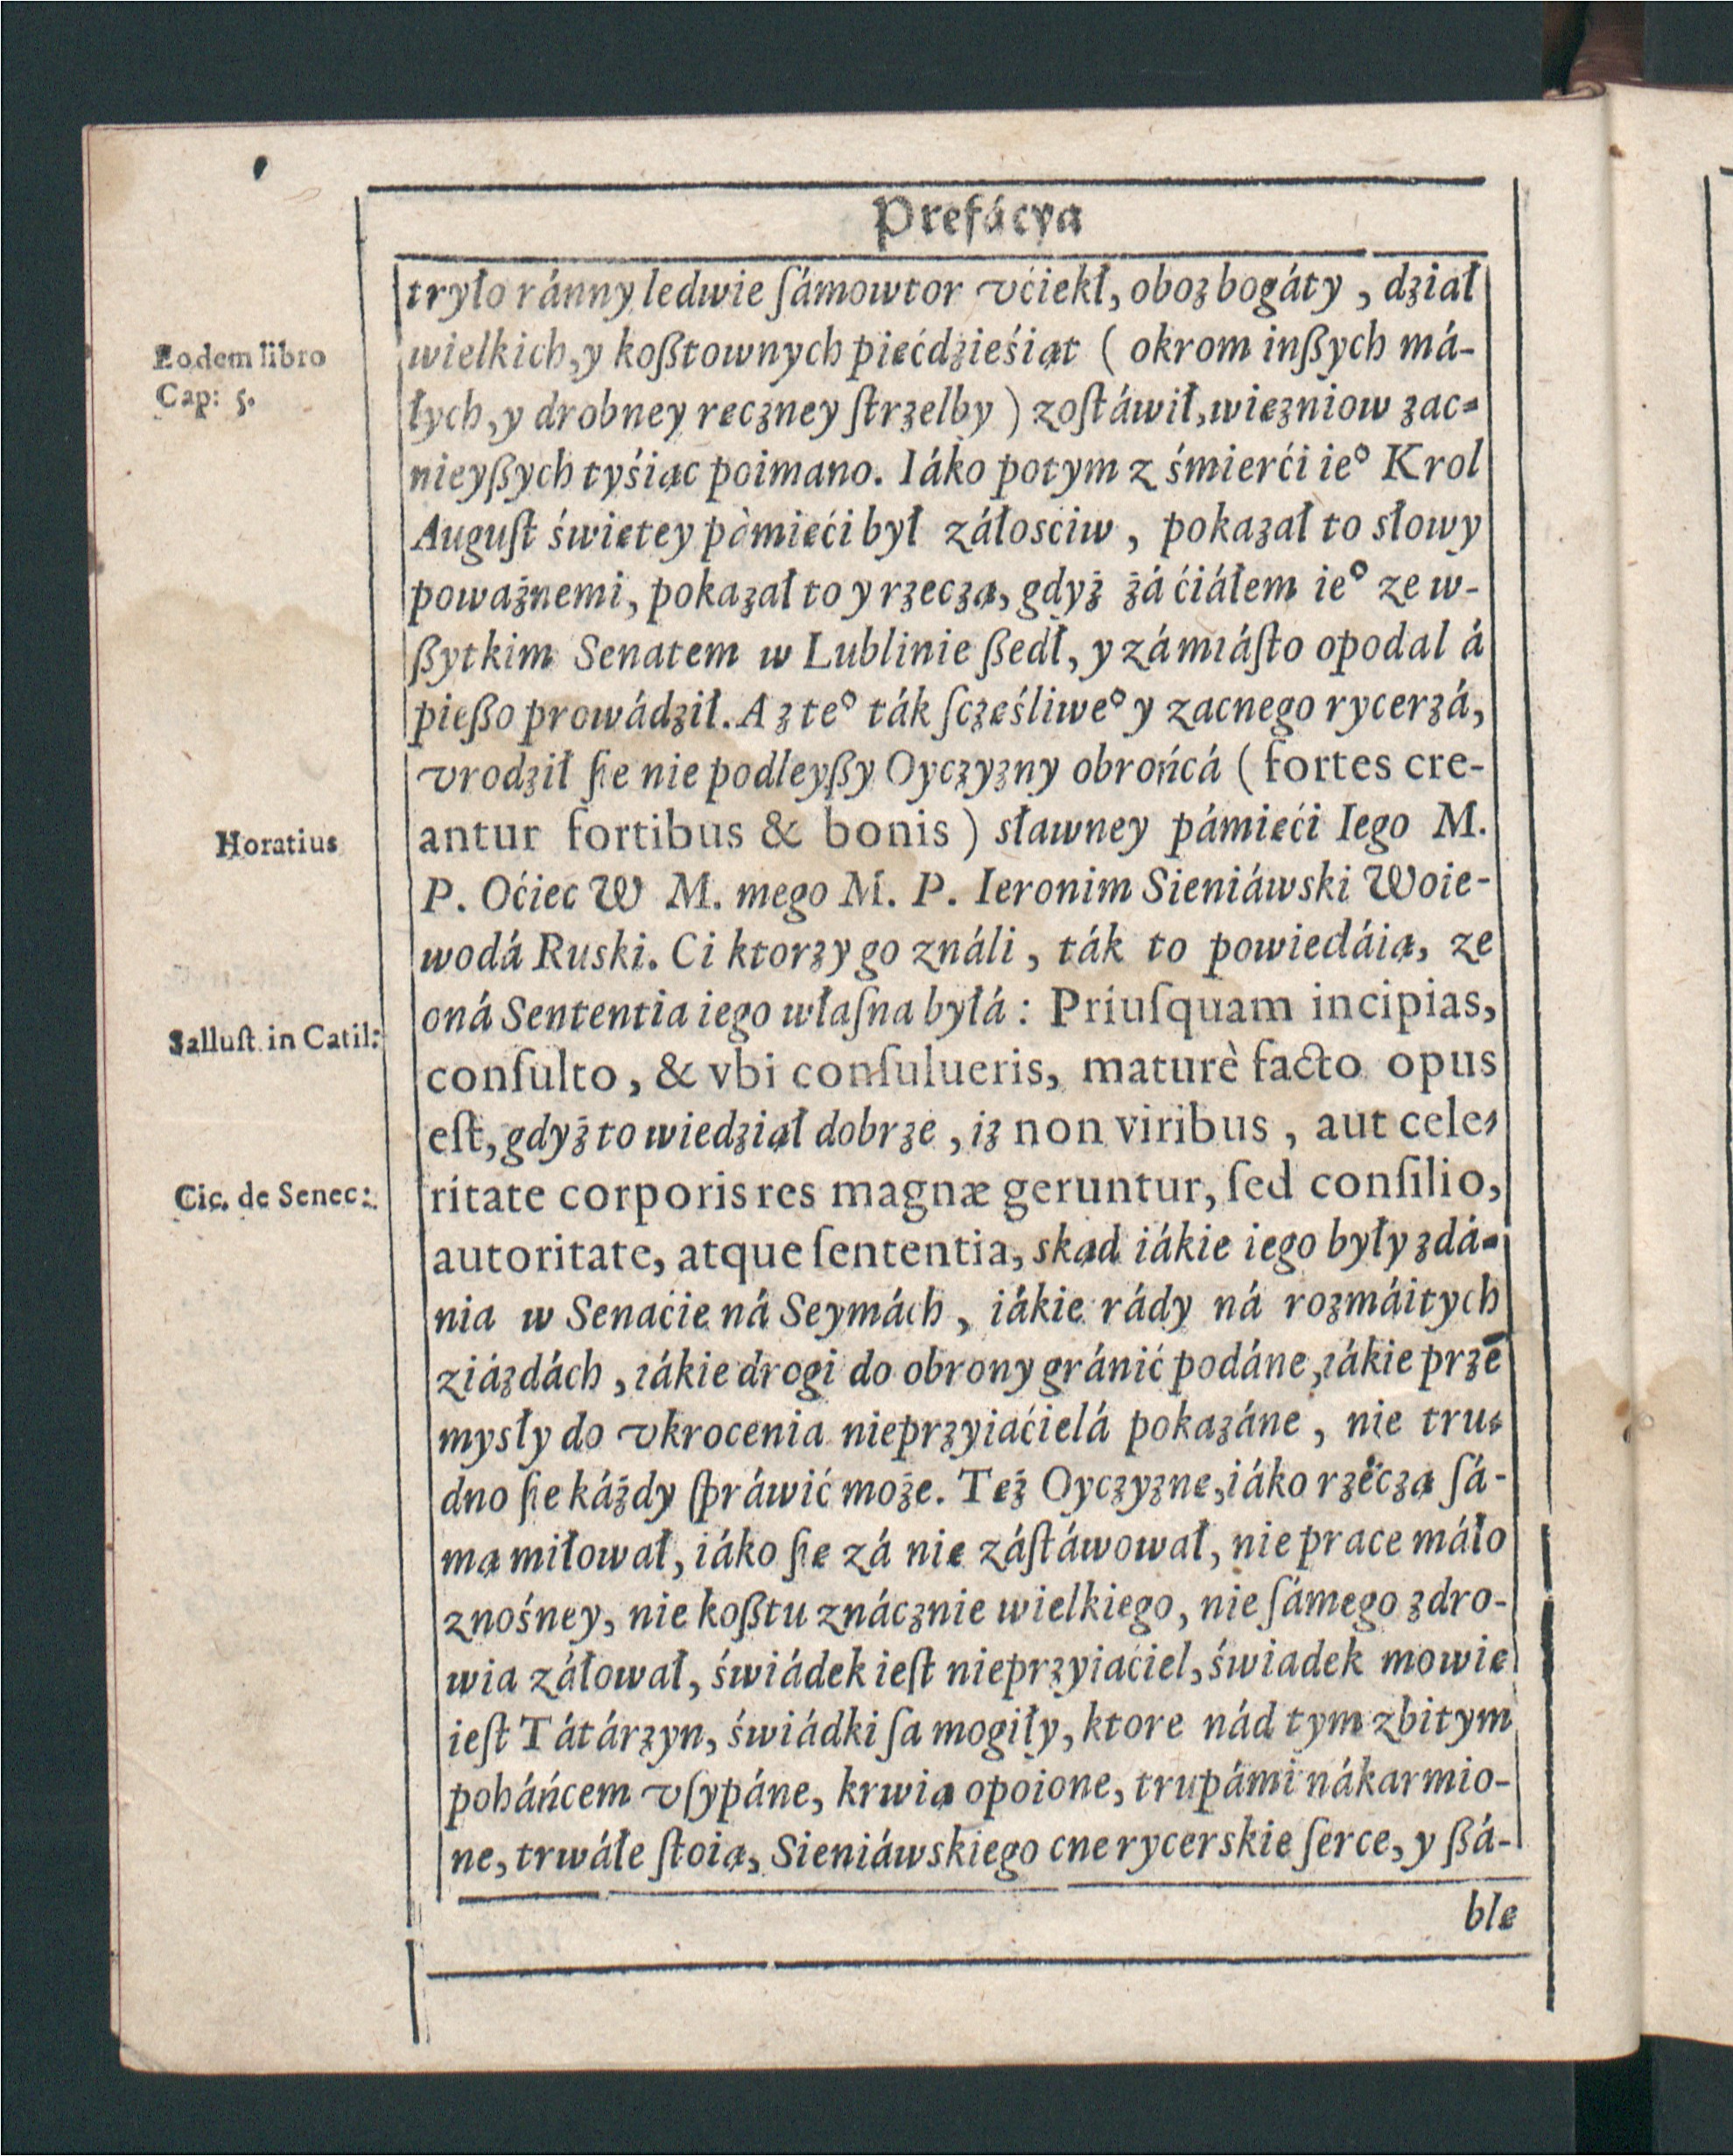 Prefácya
tryło ránny ledwie ſámowtor vćiekł, oboz bogáty, dział
Eodem libro
Cap: 5.
wielkich, y koßtownych pięćdzieśiąt ( okrom inßych má-
łych, y drobney ręczney ſtrzelby ) zoſtáwił, więzniow zac-
nieyßych tyśiąc poimano. Iáko potym z śmierći ie° Krol
Auguſt świętey pàmięći był záłosciw, pokazał to słowy
poważnemi, pokazał to y rzeczą, gdyż żá ćiáłem ie° ze w-
ßytkim Senatem w Lublinie ßedł, y zá miáſto opodal á
pießo prowádził. A z te° ták ſczęśliwe° y zacnego rycerzá,
vrodził ſie nie podleyßy Oyczyzny obrońcá ( fortes cre-
Horatius
antur fortibus & bonis ) sławney pámięći Iego M.
P. Oćiec W M. mego M. P. Ieronim Sieniáwski Woie-
wodá Ruski. Ci ktorzy goználi, ták to powiedáią, ze
Salluſt in Catil:
oná Sententia iego właſna byłá : Priuſquam incipias,
conſulto, & vbi conſulueris, maturè facto opus
eſt, gdyż to wiedział dobrze, iz non viribus, aut cele-
Cic. de Senec:
ritate corporis res magnæ geruntur, ſed conſilio,
autoritate, atque ſententia, skąd iákie iego były zdá-
nia w Senaćie ná Seymách, iákie rády ná rozmáitych
ziázdách, iákie drogi do obrony gránić podáne, iákie przē
mysły do vkrocenia nieprzyiaćielá pokazáne, nie tru-
dno ſie káżdy ſpráwić może. Też Oyczyznę, iáko rzeczą ſá-
mą miłował, iáko ſie zá nię záſtáwował, nie prace máło
znośney, nie koßtu znácznie wielkiego, nie ſámego zdro-
wia záłował, świádek ieſt nieprzyiaćiel, świadek mowię
ieſt Tátárzyn, świádki ſa mogiły, ktore nád tym zbitym
poháńcem vſypáne, krwią opoione, trupámi nákarmio-
ne, trwáłe ſtoią, Sieniáwskiego cne rycerskie ſerce, y ßá-
blę